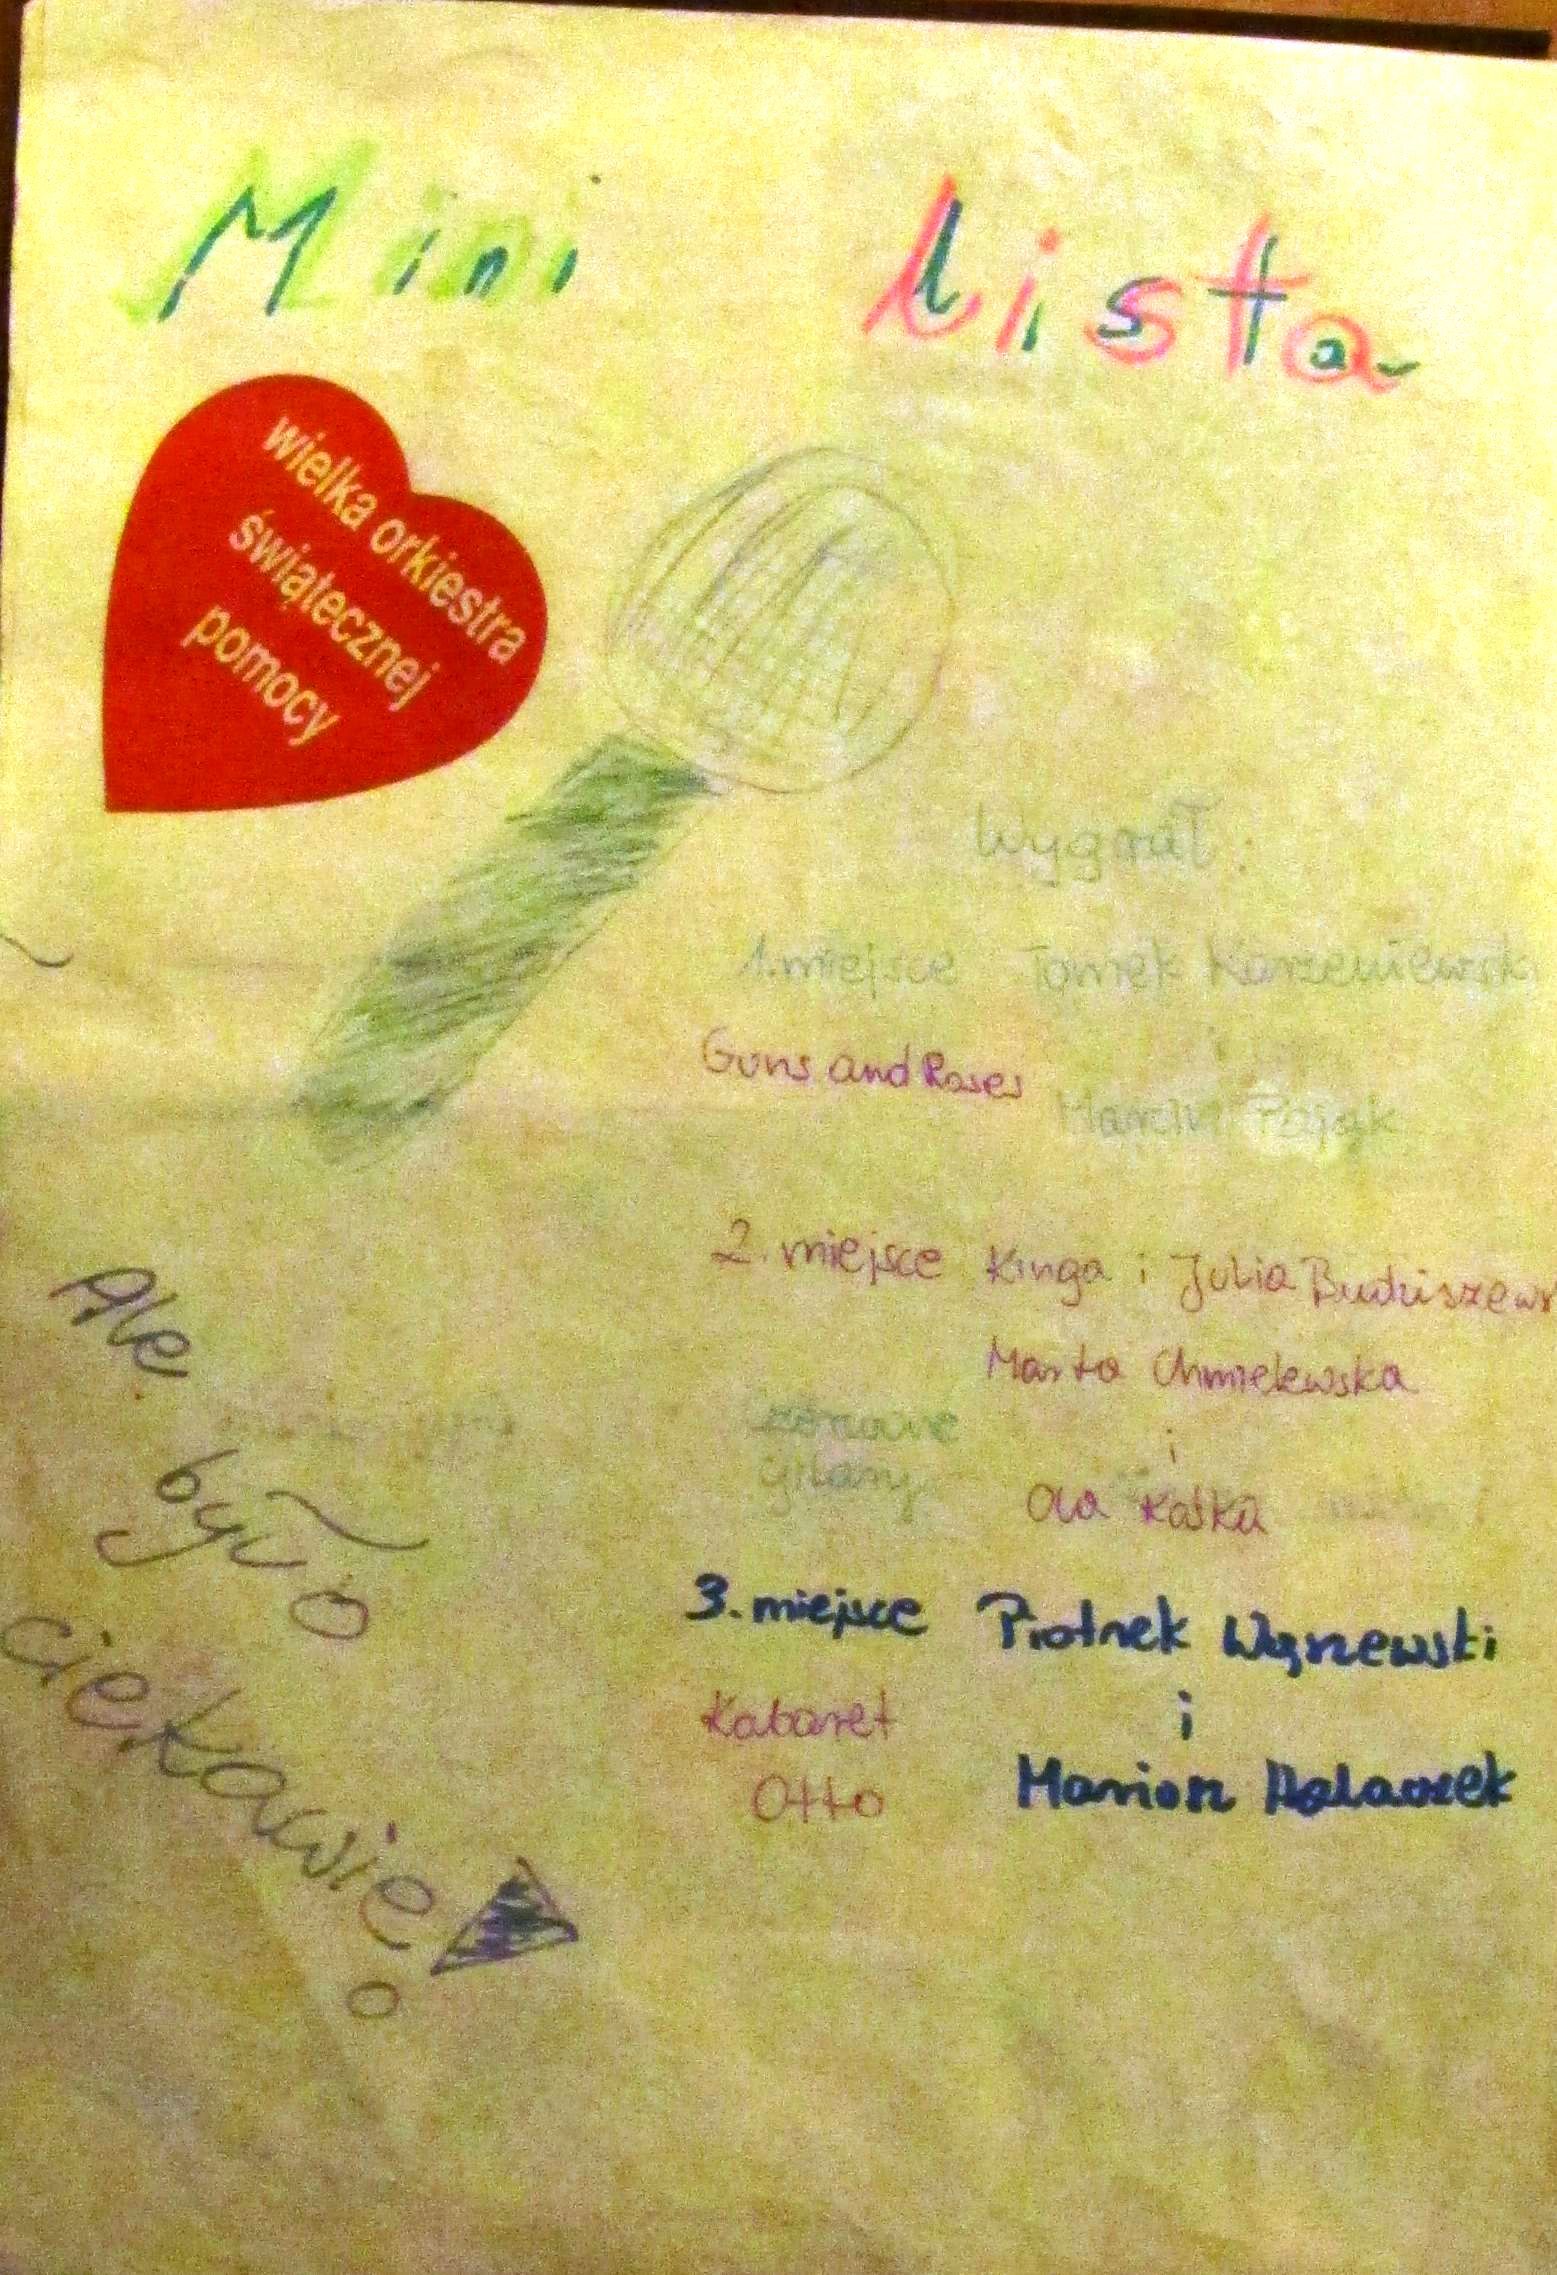 Mini Lista
wielka orkiestra
świątecznej
pomocy
Wygrał:
1. miejsce Tomek Korzeniewski
i
Guns and Roses
Marcin Pająk
2. miejsce Kinga i Julia
Marta Chmielewska
i
Ola Kaśka
3. miejsce Piotrek
Kabaret
i
Otto
Ale
było
ciekawie!